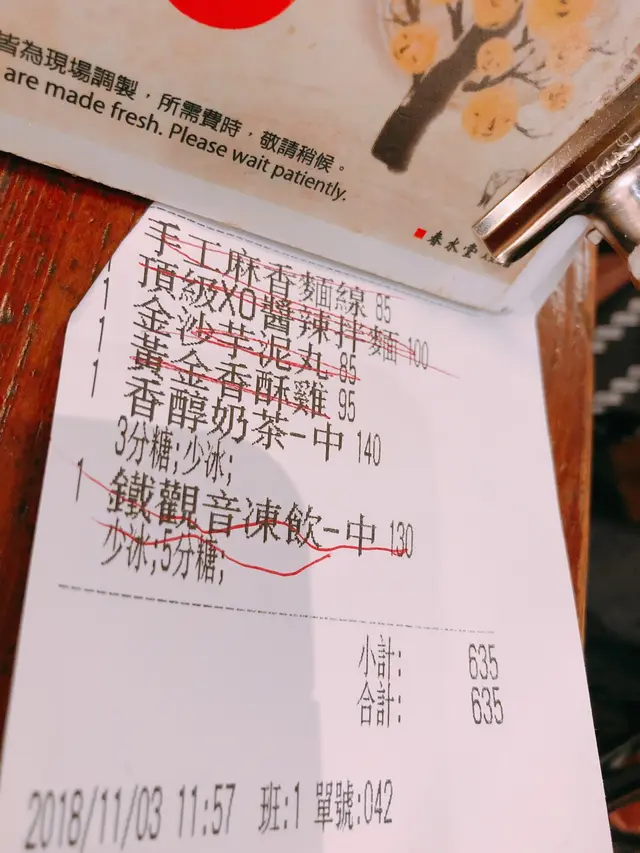 皆為現場調製，所需費時，敬請稍候。
are made fresh. Please wait patiently.
春水堂
手工麻香麵線 85
1 頂級XO醬辣拌麵 100
1 金沙芋泥丸 85
1 黃金香酥雞 95
1 香醇奶茶-中 140
3分糖;少冰;
1 鐵觀音凍飲-中 130
少冰;5分糖;
小計: 635
合計: 635
2018/11/03 11:57 班:1 單號:042